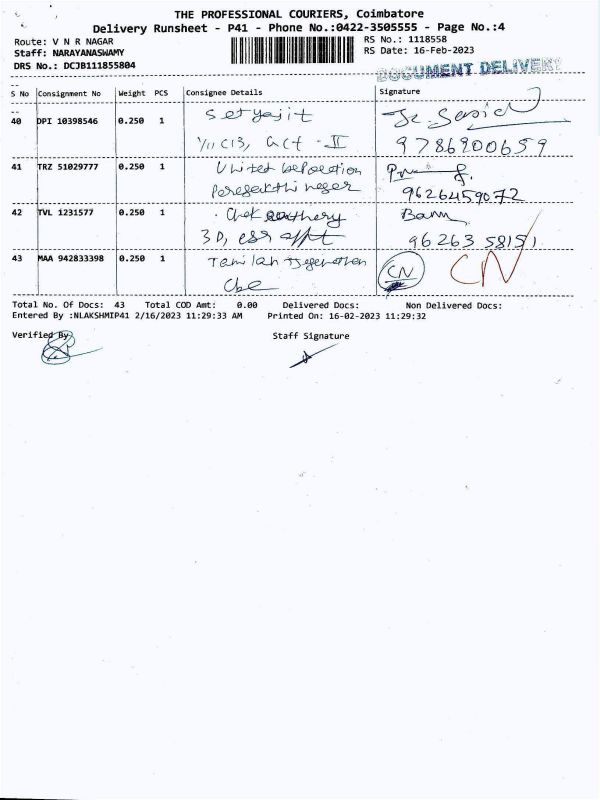 THE PROFESSIONAL COURIERS, Coimbatore
Delivery Runsheet - P41 - Phone No.:0422-3505555 - Page No.:4
Route: V N R NAGAR
RS No.: 1118558
Staff: NARAYANASWAMY
RS Date: 16-Feb-2023
DRS No.: DCJB111855804
DOCUMENT DELIVERY
S No Consignment No Weight PCS Consignee Details Signature
40 DPI 10398546 0.250 1 Satyajit
II
9786900659
41 TRZ 51029777 0.250 1 United
9626459072
42 TVL 1231577 0.250 1
3D,
96263 58151
43 MAA 942833398 0.250 1 Tamilan
Cbe
CN CN
Total No. Of Docs: 43 Total COD Amt: 0.00 Delivered Docs: Non Delivered Docs:
Entered By :NLAKSHMIP41 2/16/2023 11:29:33 AM Printed On: 16-02-2023 11:29:32
Verified By Staff Signature